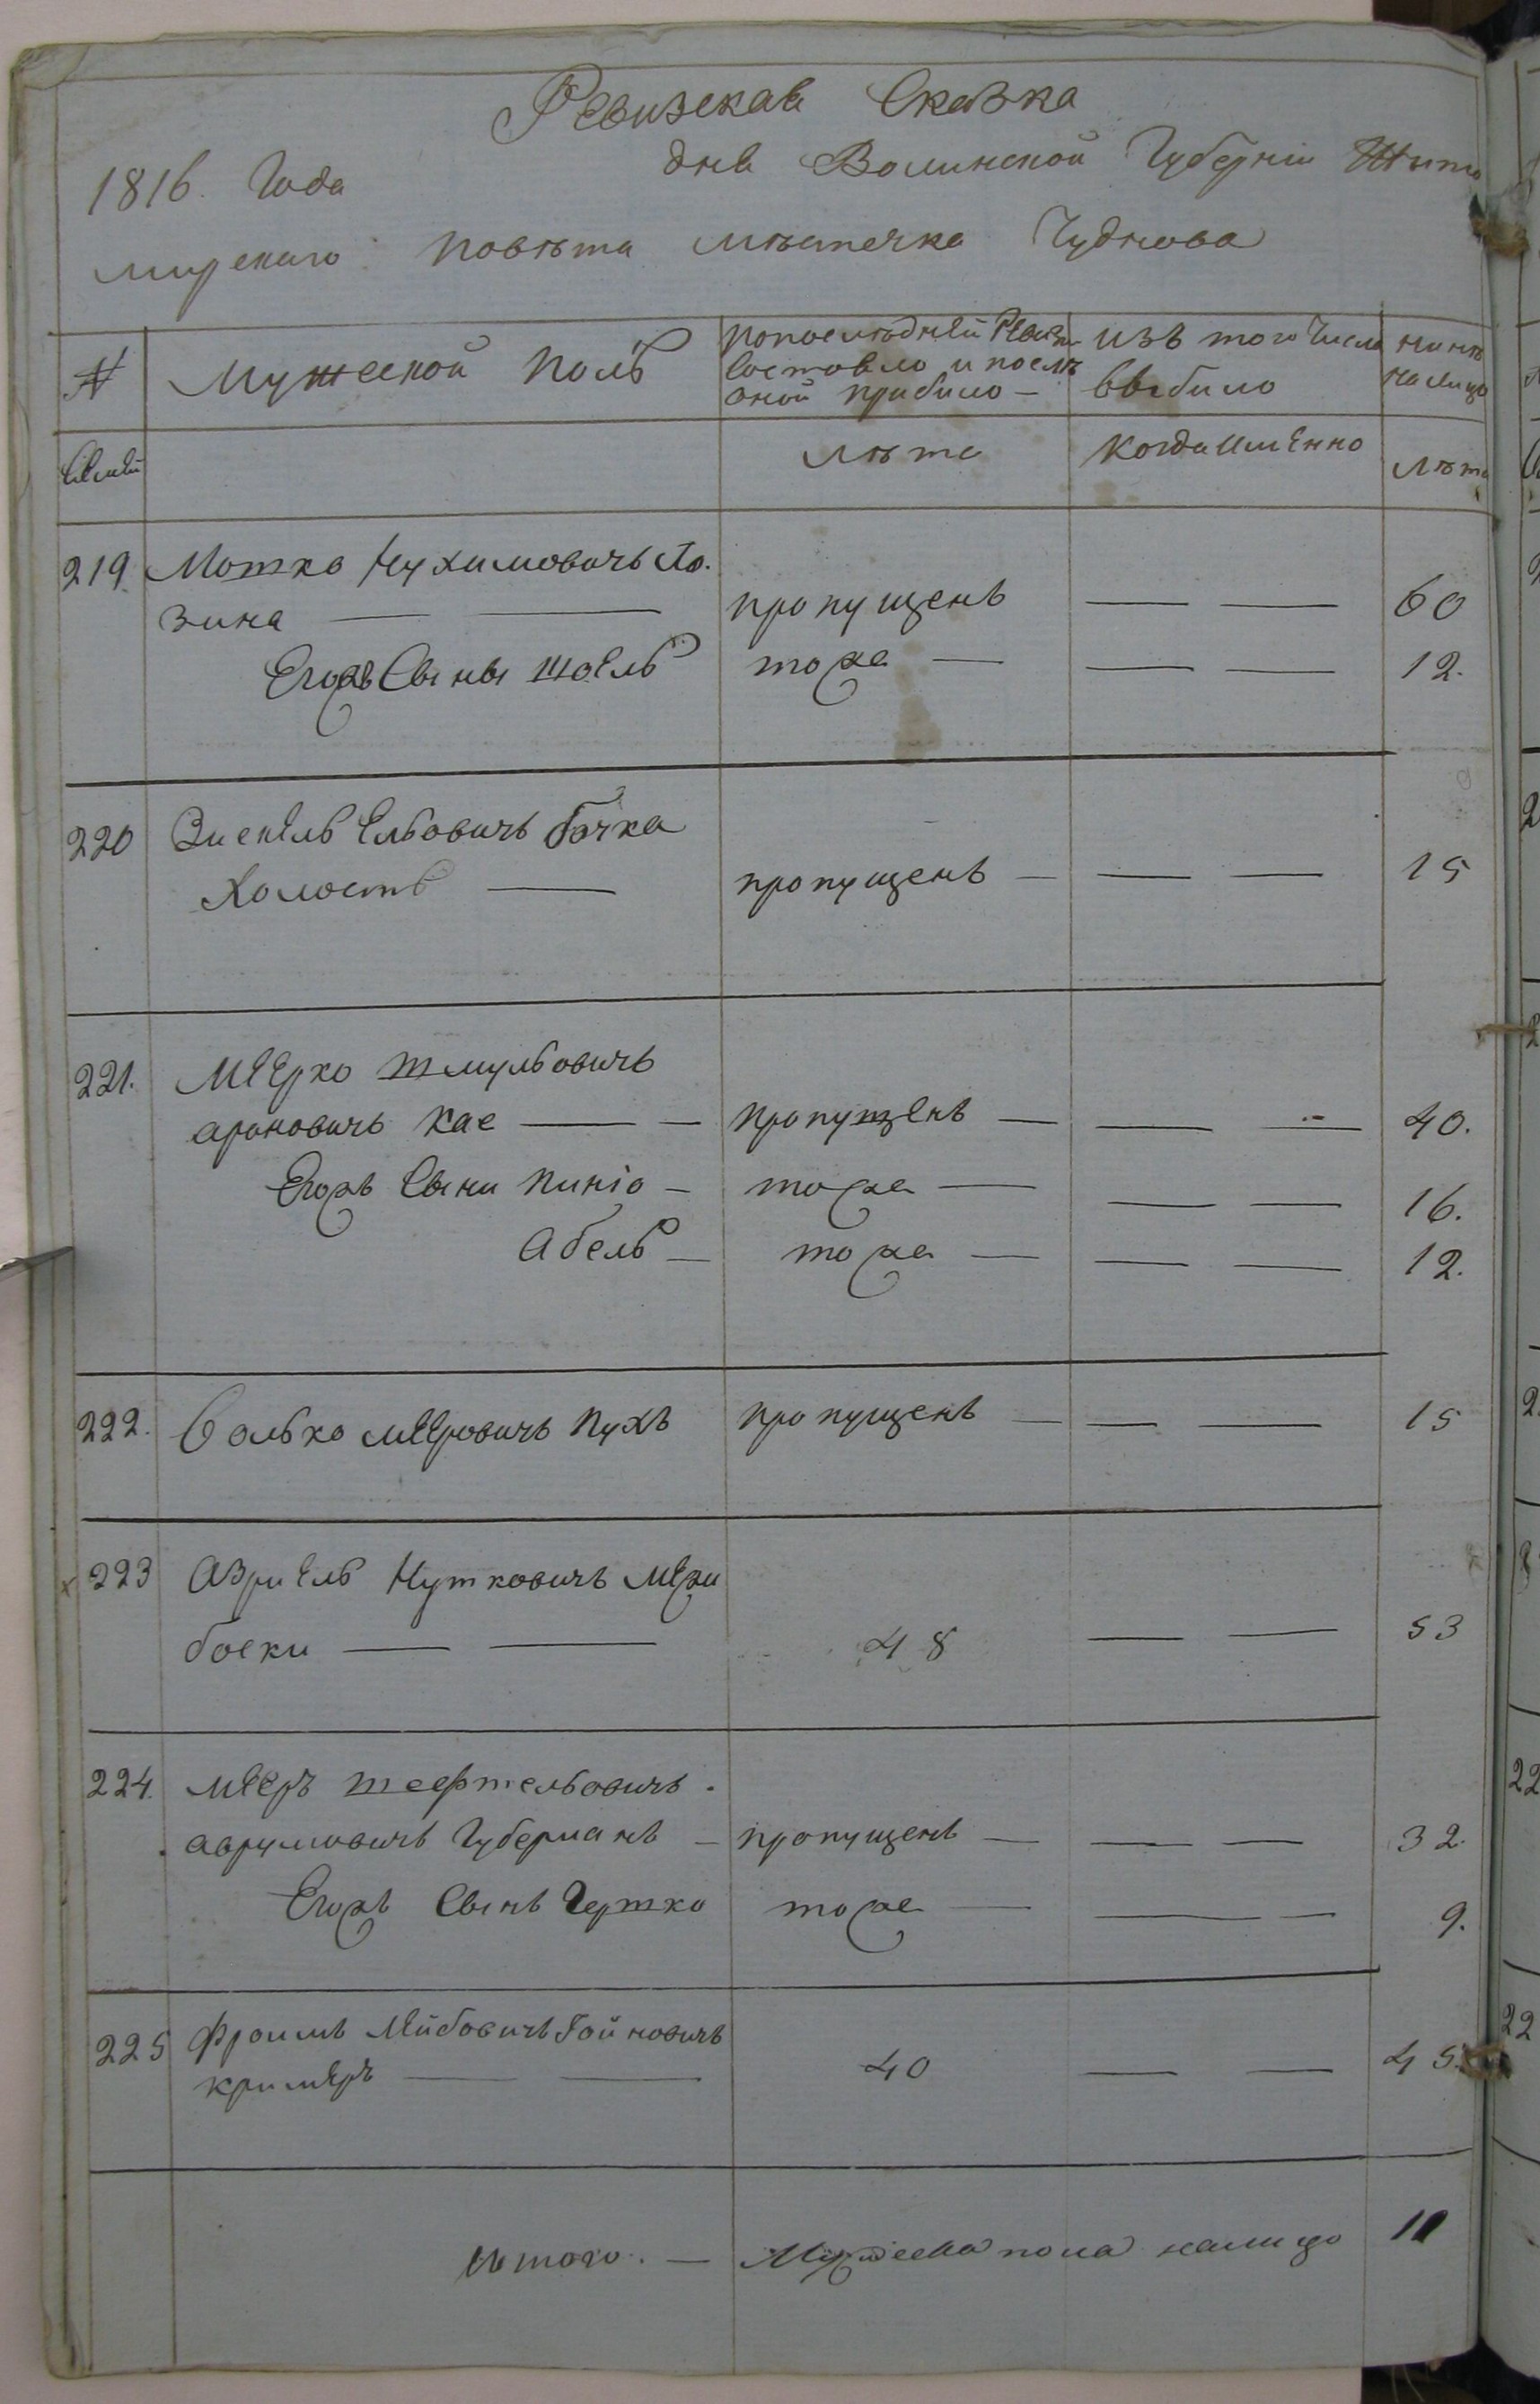 Ревизская Сказка
1816. Года дня Волинской Губерніи Жито
мирскаго повѣта мѣстечка Чуднова
№ Мужеской полъ попослѣдней Ревиз. состояло и послѣ оной прибило — изъ того числа выбило нинѣ налицо
Семей лѣта когда имѣнно лѣта
219. Мотко Нухимовичь Ло.
зина — — пропущенъ — — 60
Егожъ Сынъ Шоель тоже — — — 12.
220 Зисель Ельовичь бочка
Холостъ — пропущенъ — — — 15
221. Меерко Шмульовичь
ароновичь Кас — — пропущенъ — — — 40.
Егожъ Сыни Пиніо — тоже — — — 16.
Абель — тоже — — — 12.
222. Волько мееровичь Пухъ пропущенъ — — — 15
223 Азриель Нутковичь межи
боски — — 48 — — 53
224. меер шефтельовичь.
аврумовичь Губерманъ — пропущенъ — — — 32.
Егожъ Сынъ Гершко тоже — — — 9.
225 Фроимъ Лейбовичь Гойновичь
кримеръ — — 40 — — 45.
Итого. — Мужеска пола налицо 11